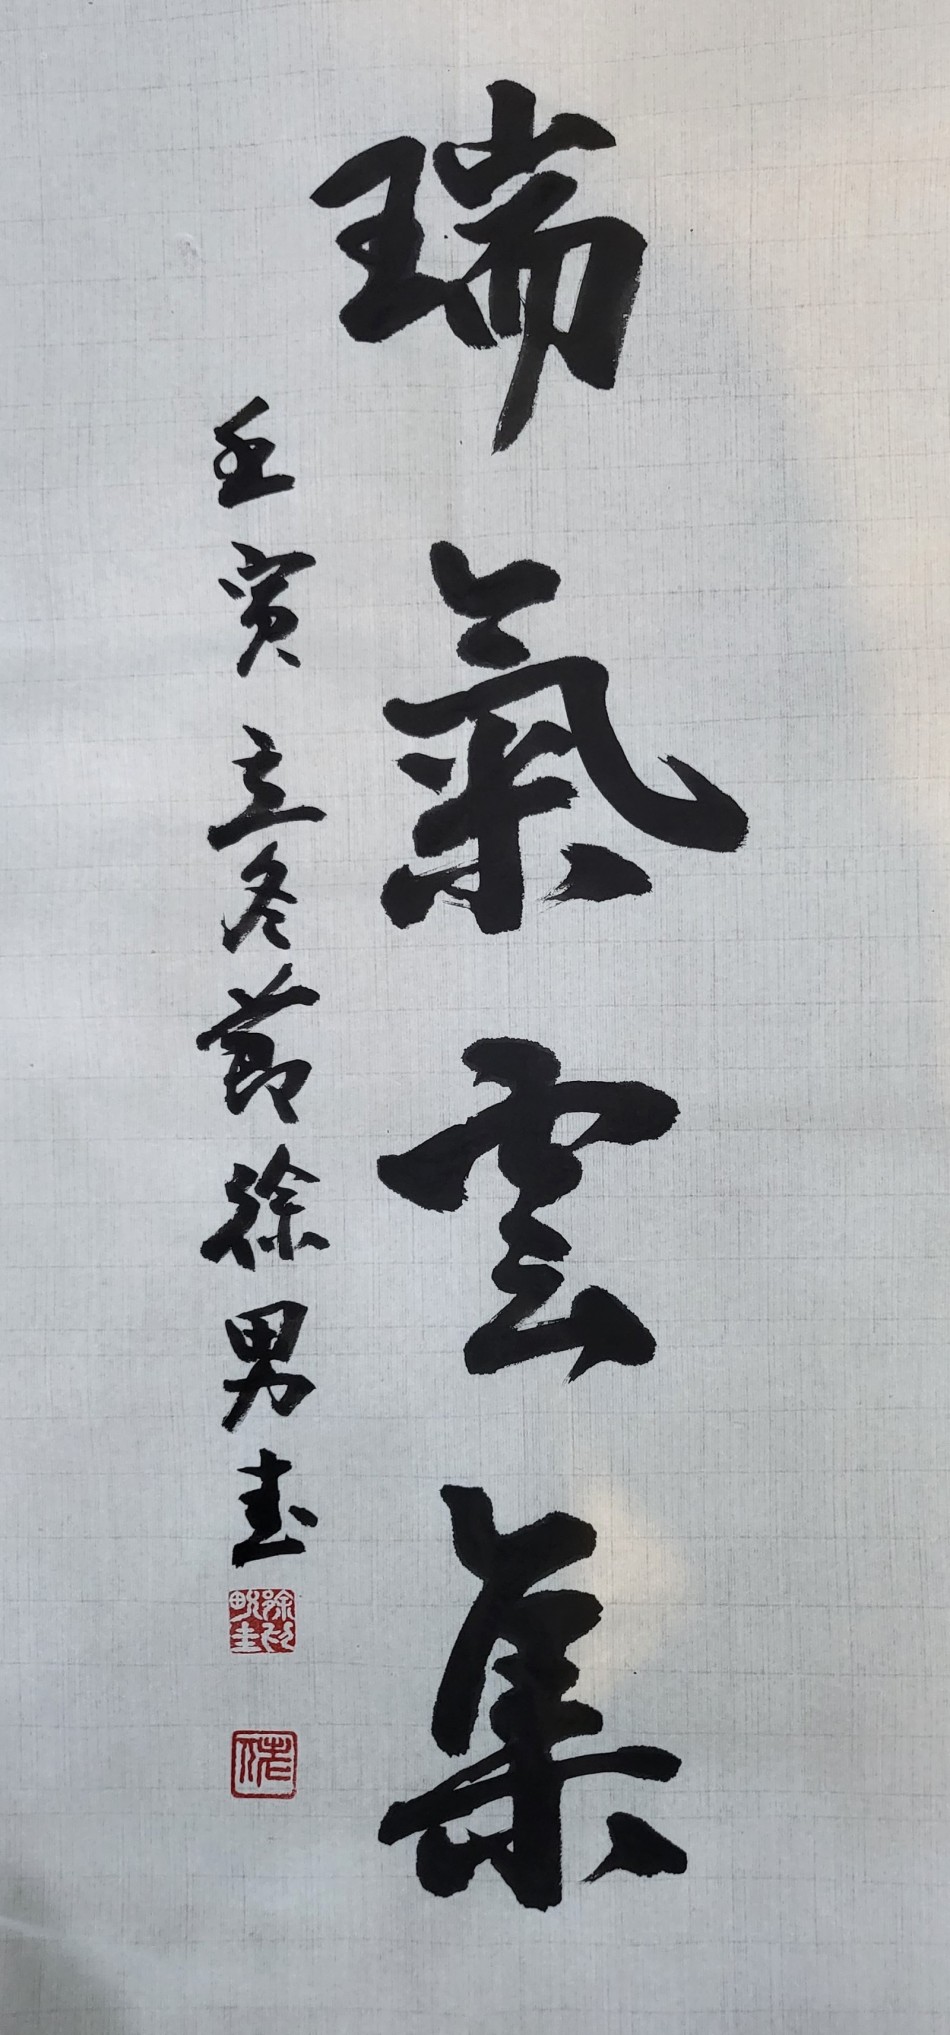 瑞氣雲集
壬寅立冬節徐男圭